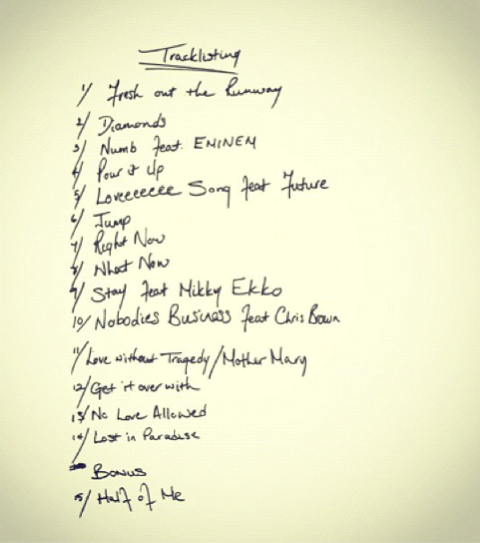 Tracklisting
1/ Fresh out the Runway
2/ Diamonds
3/ Numb feat. EMINEM
4/ Pour it Up
5/ Loveeeeeee Song feat Future
6/ Jump
7/ Right Now
8/ What Now
9/ Stay feat Mikky Ekko
10/ Nobodies Business feat Chris Bown
11/ Love without Tragedy/Mother Mary
12/ Get it over with
13/ No Love Allowed
14/ Lost in Paradise
Bonus
15/ Half of Me